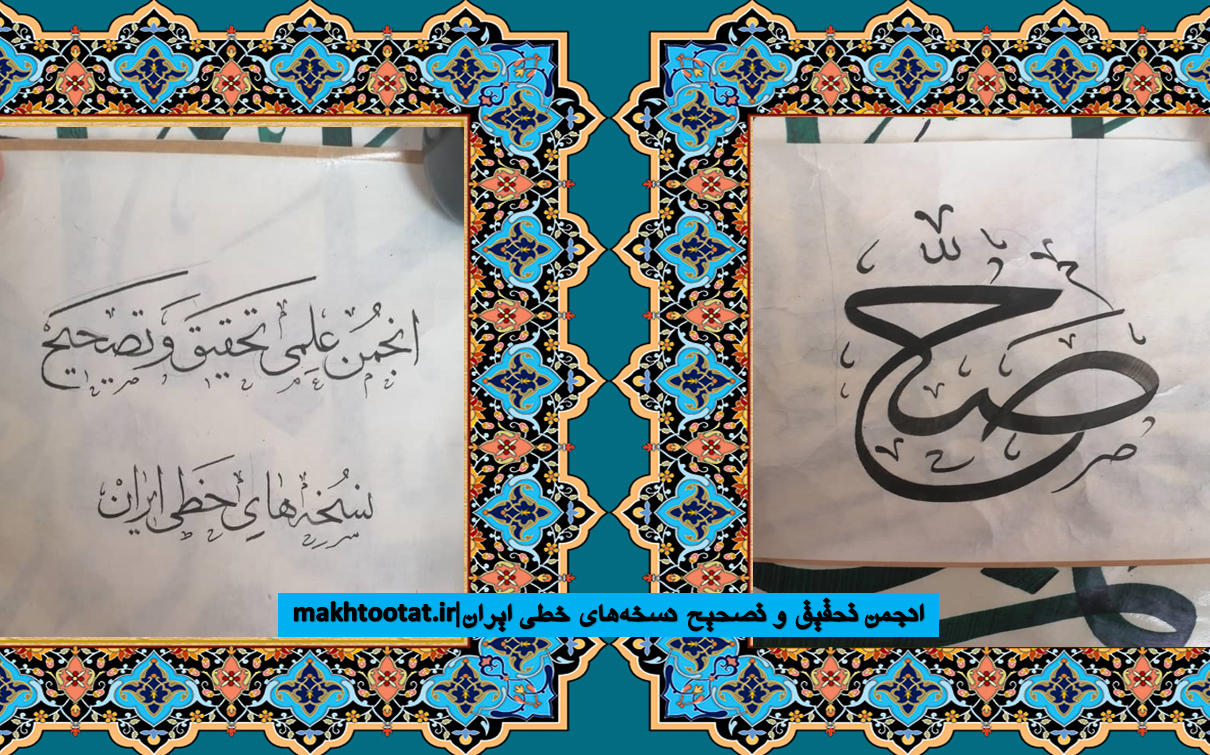 صح
انجمن علمی تحقیق و تصحیح
نسخه‌های خطی ایران
انجمن تحقیق و تصحیح نسخه‌های خطی ایران|makhtootat.ir